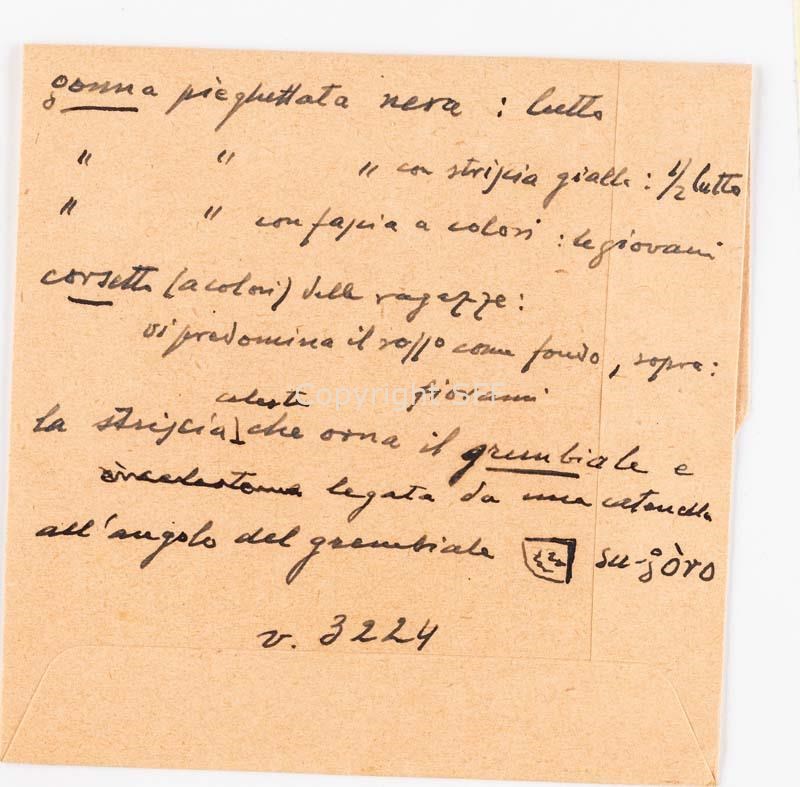 gonna pieghettata nera : lutto
" " " con striscia gialla : 1/2 lutto
" " con fascia a colori : le giovani
corsetto (a colori) delle ragazze :
vi predomina il rosso come fondo, sopra :
celeste giovani
la striscia che orna il grembiale e
legata da una catenella
all'angolo del grembiale su-ġòro
v. 3224
Copyright SFF